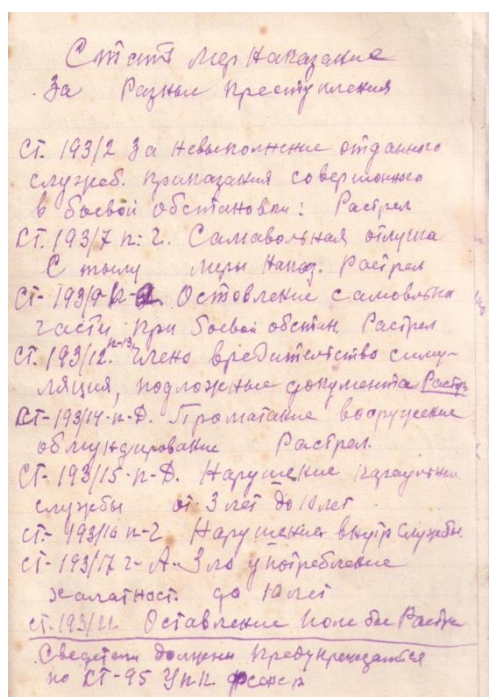 Стати мер наказание
За Разные преступления
СТ. 193/2 За невыполнение отданного
служеб. приказания совершонного
в боевой обстановки: Растрел
СТ. 193/7 п: г. Самавольная отлучка
С тылу меры наказ. Растрел
СТ- 193/9 Остовление самовольно
части при боевой обстан. Растрел
СТ. 193/12. п-13 члено вредительство симу-
ляция, подложные документа Растр
СТ-193/14-п-Д. Проматание вооружение
обмундирование Растрел.
СТ-193/15-п-Д. Нарушение караульн
службы от 3 лет до 10 лет
СТ- 193/16 п-г Нарушения внутр службы.
СТ-193/17 г- А- Зло употребление
халатност. до 10 лет
СТ. 193/22 Оставление поле боя Растре
Сведетели должены предупреждатся
по СТ-95 УПК